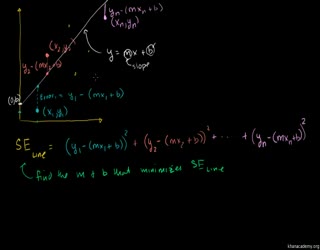 yₙ-(mxₙ+b)
(xₙ,yₙ)
(x₂,y₂)
y = mx + b
slope
y₂-(mx₂+b)
(0,b)
Error₁ = y₁ - (mx₁ + b)
(x₁,y₁)
SE LINE = (y₁-(mx₁+b))² + (y₂-(mx₂+b))² + ... + (yₙ-(mxₙ+b))²
find the m + b that minimizes SE LINE
khanacademy.org